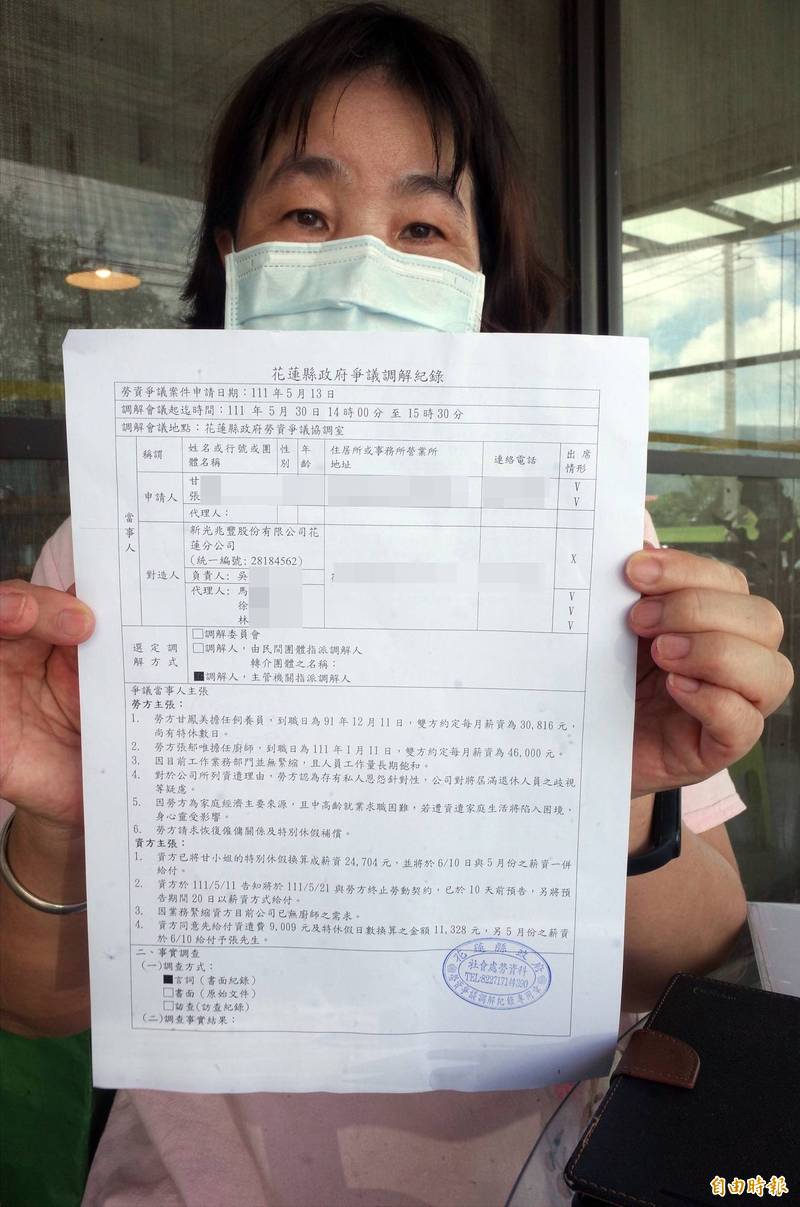 花蓮縣政府爭議調解紀錄
勞資爭議案件申請日期：111 年 5 月 13 日
調解會議起迄時間：111 年 5 月 30 日 14 時 00 分 至 15 時 30 分
調解會議地點：花蓮縣政府勞資爭議協調室
稱謂 姓名或行號或團體名稱 性別 年齡 住居所或事務所營業所地址 連絡電話 出席情形
當事人
申請人
甘 V
張 V
代理人：
對造人
新光兆豐股份有限公司花
蓮分公司
(統一編號: 28184562) X
負責人: 吳
代理人: 馬 V
徐 V
林 V
選定調解方式
□調解委員會
□調解人，由民間團體指派調解人
轉介團體之名稱：
■調解人，主管機關指派調解人
爭議當事人主張
勞方主張：
1. 勞方甘鳳美擔任飼養員，到職日為 91 年 12 月 11 日，雙方約定每月薪資為 30,816 元，
尚有特休數日。
2. 勞方張郁唯擔任廚師，到職日為 111 年 1 月 11 日，雙方約定每月薪資為 46,000 元。
3. 因目前工作業務部門並無緊縮，且人員工作量長期飽和。
4. 對於公司所列資遣理由，勞方認為存有私人恩怨針對性，公司對將屆滿退休人員之歧視
等疑慮。
5. 因勞方為家庭經濟主要來源，且中高齡就業求職困難，若遭資遣家庭生活將陷入困境，
身心靈受影響。
6. 勞方請求恢復僱傭關係及特別休假補償。
資方主張：
1. 資方已將甘小姐的特別休假換算成薪資 24,704 元，並將於 6/10 日與 5 月份之薪資一併
給付。
2. 資方於 111/5/11 告知將於 111/5/21 與勞方終止勞動契約，已於 10 天前預告，另將預
告期間 20 日以薪資方式給付。
3. 因業務緊縮資方目前公司已無廚師之需求。
4. 資方同意先給付資遣費 9,009 元及特休假日數換算之金額 11,328 元，另 5 月份之薪資
於 6/10 給付予張先生。
二、事實調查
(一)調查方式：
■言詞（書面紀錄）
□書面（原始文件）
□訪查(訪查紀錄)
(二)調查事實結果：
花蓮縣政府
社會處勞資科
TEL:8227171
自由時報